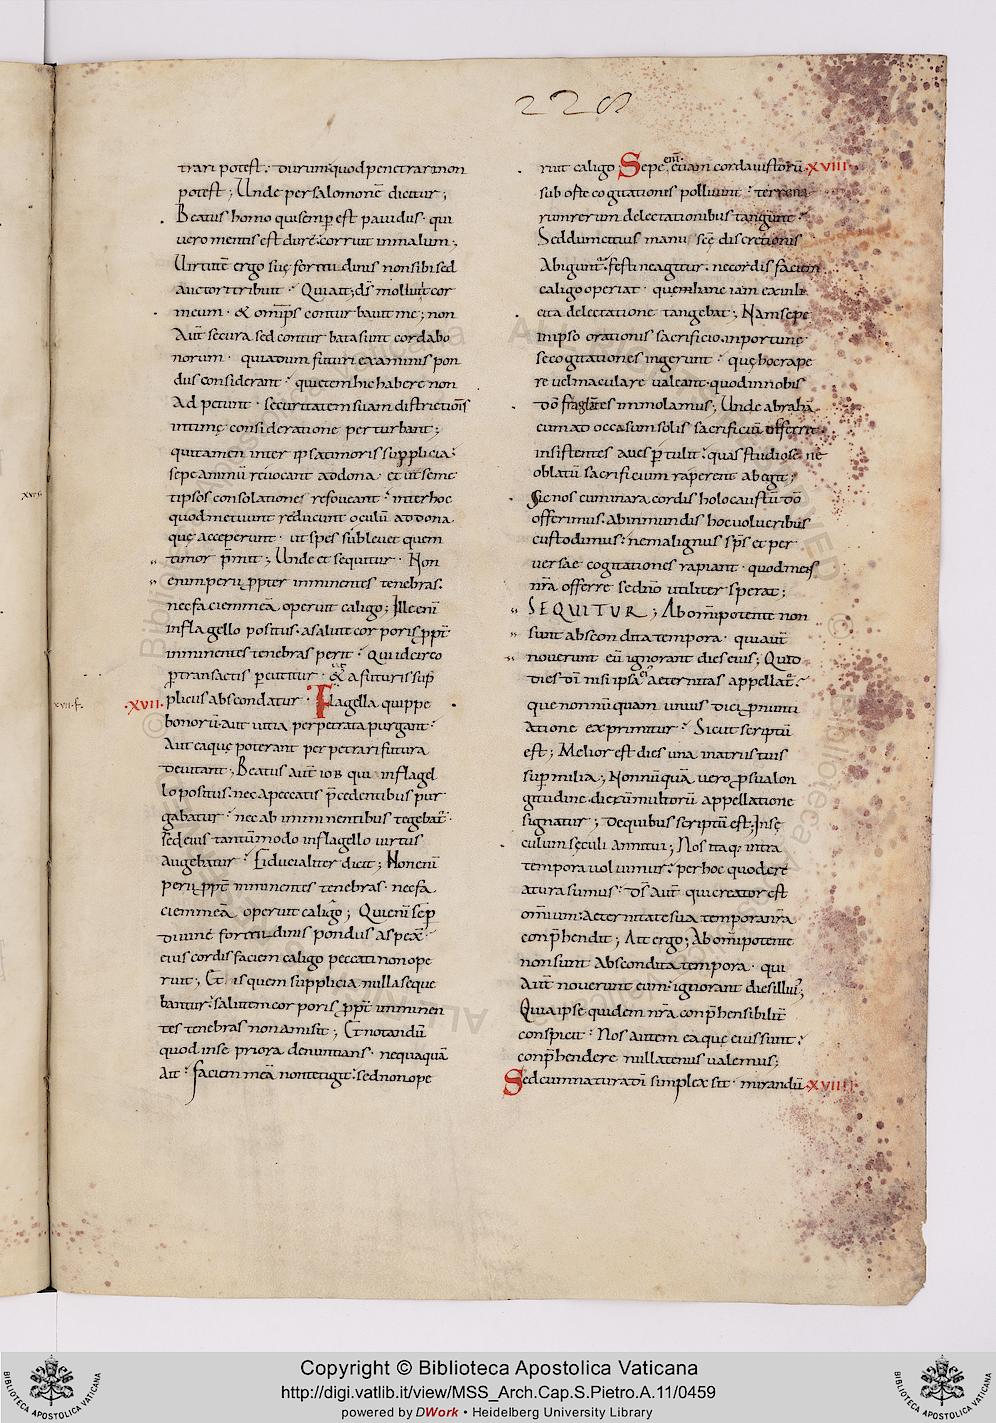 228
trari potest. durum quod penetrari non
potest; Unde per salomonē dicitur;
Beatus homo qui semp est pauidus. qui
uero mentis est durę. corruit in malum;
Uirtutē ergo suę fortitudinis non sibi sed
auctori tribuit. Qui ait; dš molliuit cor
meum. & omps conturbauit me; non
aut secura sed conturbata sunt corda bo
norum. quia dum futuri examinis pon
dus considerant. quietem hic habere non
adpetunt. securitatem suam districtionis
intimę consideratione perturbant;
qui tamen inter ipsa timoris supplicia.
sepe animū reuocant ad dona. et ut semet
ipsos consolationę refoueant. inter hoc
quod metuunt reducunt oculū ad dona
quę acceperunt. ut spes subleuet quem
timor p̄mit; Unde et sequitur. Non
enim perii ppter imminentes tenebras.
nec faciem meā operuit caligo; Ille enī
in flagello positus. a salute corporis ppt
imminentes tenebras perit. Qui idcirco
p transactis percutitur. uť & a futuris sup
XVII
·XVII· pliciis abscondatur. Flagella quippe
bonorū aut uitia perpetrata purgant.
Aut ea quę poterant perpetrari futura
deuitant; Beatus aut iob qui in flagel
lo positus. nec a peccatis p̄cedentibus pur
gabatur. nec ab imminentibus tegebat.
sed eius tantummodo in flagello uirtus
augebatur. Fiducialiter dicit; Non enī
perii ppt imminentes tenebras. nec fa
ciem meā operuit caligo; Qui enī sep
diuinę fortitudinis pondus aspexit.
eius cordis faciem caligo peccati non ope
ruit; Et is quem supplicia nulla seque
bantur. salutem corporis ppt imminen
tes tenebras non amisit; Et notandū
quod in se priora denuntians. nequaquā
ait. faciem meā non tetigit. sed non ope
ruit caligo. Sepe eni etiam corda iustorū ·XVIII·
suborte cogitationis polluunt. terrena
rumrerum delectationibus tangunt.
Sed dum citius manu scę discretionis
abigunt. festine agitur. ne cordis faciem
caligo operiat. quem hanc iam ex inli
cita delectatione tangebat; Nam sepe
in ipso orationis sacrificio. inportunę
se cogitationes ingerunt. quę hoc rape
re uel maculare ualeant. quod in nobis
dō flagrantes immolamus; Unde abrahā
cum ad occasum solis sacrificiū offerret
insistentes aues ptulit. quas studiose ne
oblatū sacrificium raperent abegit;
Sic nos cum in ara cordis holocaustū dō
offerimus. ab inmundis hoc uolucribus
custodimus. ne maligni sps et per
uersae cogitationes rapiant. quod mens
nra offerre se dno utiliter sperat;
SEQUITUR; Ab omnipotente non
sunt abscondita tempora. qui aut
nouerunt eū ignorant dies eius; Quid
dies dī nisi ipsa aeternitas appellat.
que nonnūquam unius diei pnunti
atione exprimitur. Sicut scriptū
est; Melior est dies una in atriis tuis
sup milia; Nonnūquā uero psua lon
gitudine. dierū multorū appellatione
signatur; De quibus scriptū est; In sę
culum sęculi anni tui; Nos itaq intra
tempora uoluimur. per hoc quod cre
atura sumus. ds aut qui creator est
omnium. aeternitate sua tempora nra
conphendit; Ait ergo; Ab omnipotente
non sunt abscondita tempora. qui
aut nouerunt eum. ignorant dies illius;
Quia ipse quidem nra conphensibilit
conspicit. Nos autem ea que eius sunt.
conphendere nullatenus ualemus;
Sed cum natura dī simplex sit. mirandū ·XVIIII·
Copyright © Biblioteca Apostolica Vaticana
http://digi.vatlib.it/view/MSS_Arch.Cap.S.Pietro.A.11/0459
powered by DWork • Heidelberg University Library
BIBLIOTECA APOSTOLICA VATICANA
BIBLIOTECA APOSTOLICA VATICANA